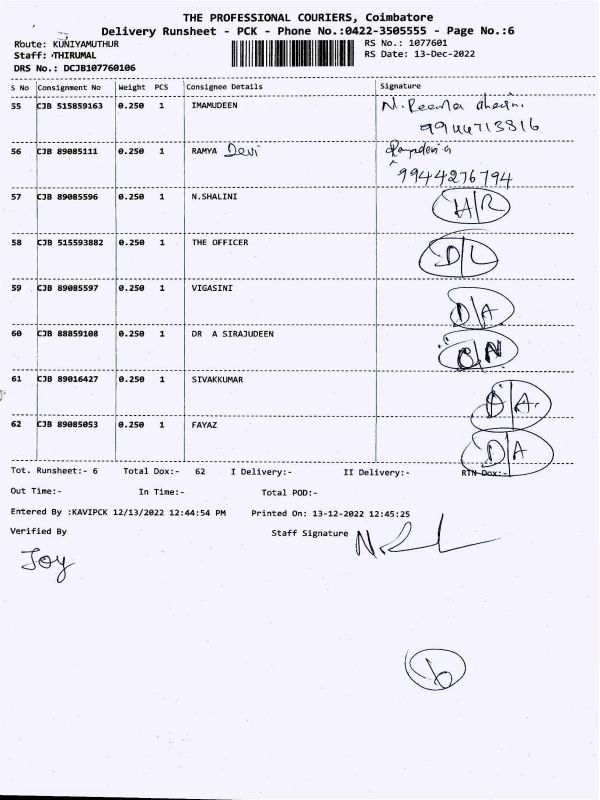 THE PROFESSIONAL COURIERS, Coimbatore
Delivery Runsheet - PCK - Phone No.:0422-3505555 - Page No.:6
Route: KUNIYAMUTHUR RS No.: 1077601
Staff: THIRUMAL RS Date: 13-Dec-2022
DRS No.: DCJB107760106
S No Consignment No Weight PCS Consignee Details Signature
55 CJB 515859163 0.250 1 IMAMUDEEN
9944713816
56 CJB 89085111 0.250 1 RAMYA Devi
9944276794
57 CJB 89085596 0.250 1 N.SHALINI H/R
58 CJB 515593882 0.250 1 THE OFFICER D/L
59 CJB 89085597 0.250 1 VIGASINI D/A
60 CJB 88859108 0.250 1 DR A SIRAJUDEEN
61 CJB 89016427 0.250 1 SIVAKKUMAR D/A.
62 CJB 89085053 0.250 1 FAYAZ D/A
Tot. Runsheet:- 6 Total Dox:- 62 I Delivery:- II Delivery:- RTN Dox:-
Out Time:- In Time:- Total POD:-
Entered By :KAVIPCK 12/13/2022 12:44:54 PM Printed On: 13-12-2022 12:45:25
Verified By Staff Signature
Joy